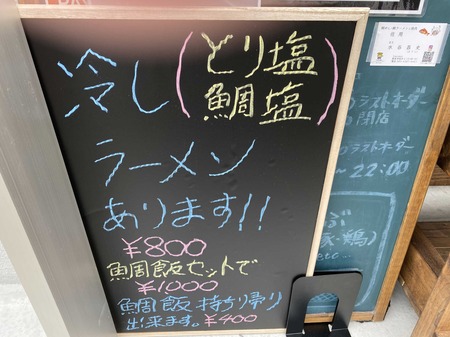 冷し(とり塩
鯛塩)
ラーメン
あります!!
¥800
鯛飯セットで
¥1000
鯛飯持ち帰り
出来ます。¥400
ラストオーダー
閉店
ラストオーダー
~22:00